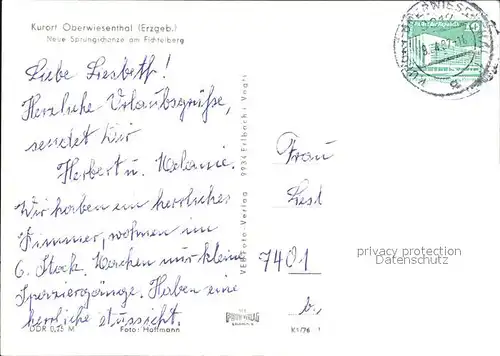 Kurort Oberwiesenthal (Erzgeb.)
Neue Sprungschanze am Fichtelberg
Liebe Liesbeth!
Herzliche Urlaubsgrüße,
sendet Dir
Herbert u. Melanie.
Wir haben ein herrliches
Zimmer, wohnen im
6. Stock. Machen nur kleine
Spaziergänge. Haben eine
herrliche Aussicht.
DDR 0,25 M
Foto: Hoffmann
VEB Foto-Verlag 9934 Erlbach i. Vogtl
K1/76
Frau
Liesl
7401
b.
privacy protection
Datenschutz
OBERWIESENTHAL
10